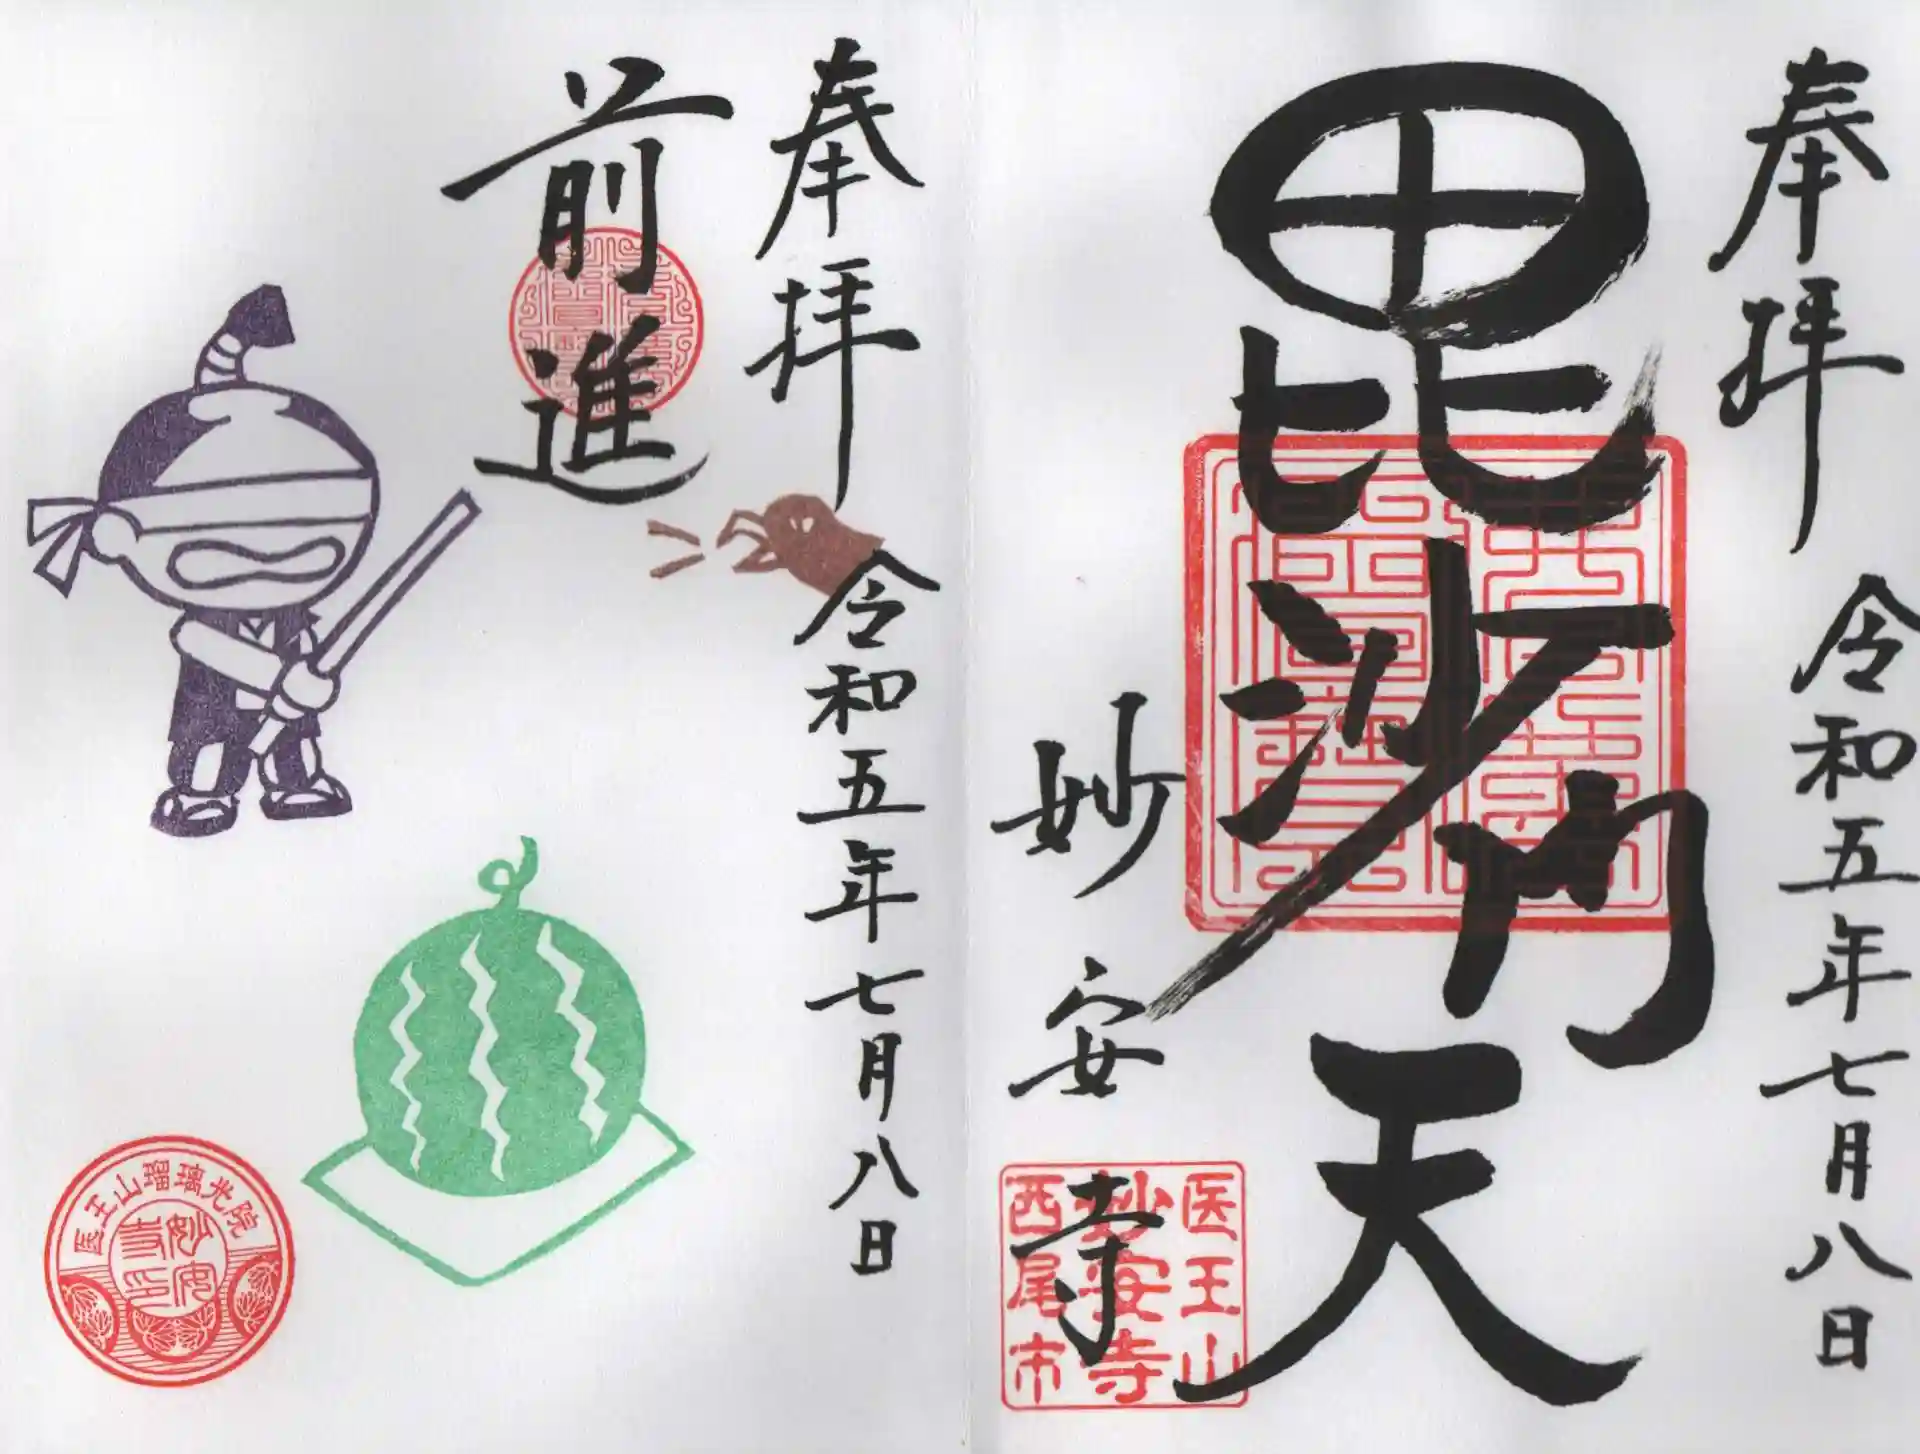 奉拝
令和五年七月八日
毘沙門天
妙安寺
医王山
妙安寺
西尾市
奉拝
令和五年七月八日
前進
医王山瑠璃光院
妙安
寺印